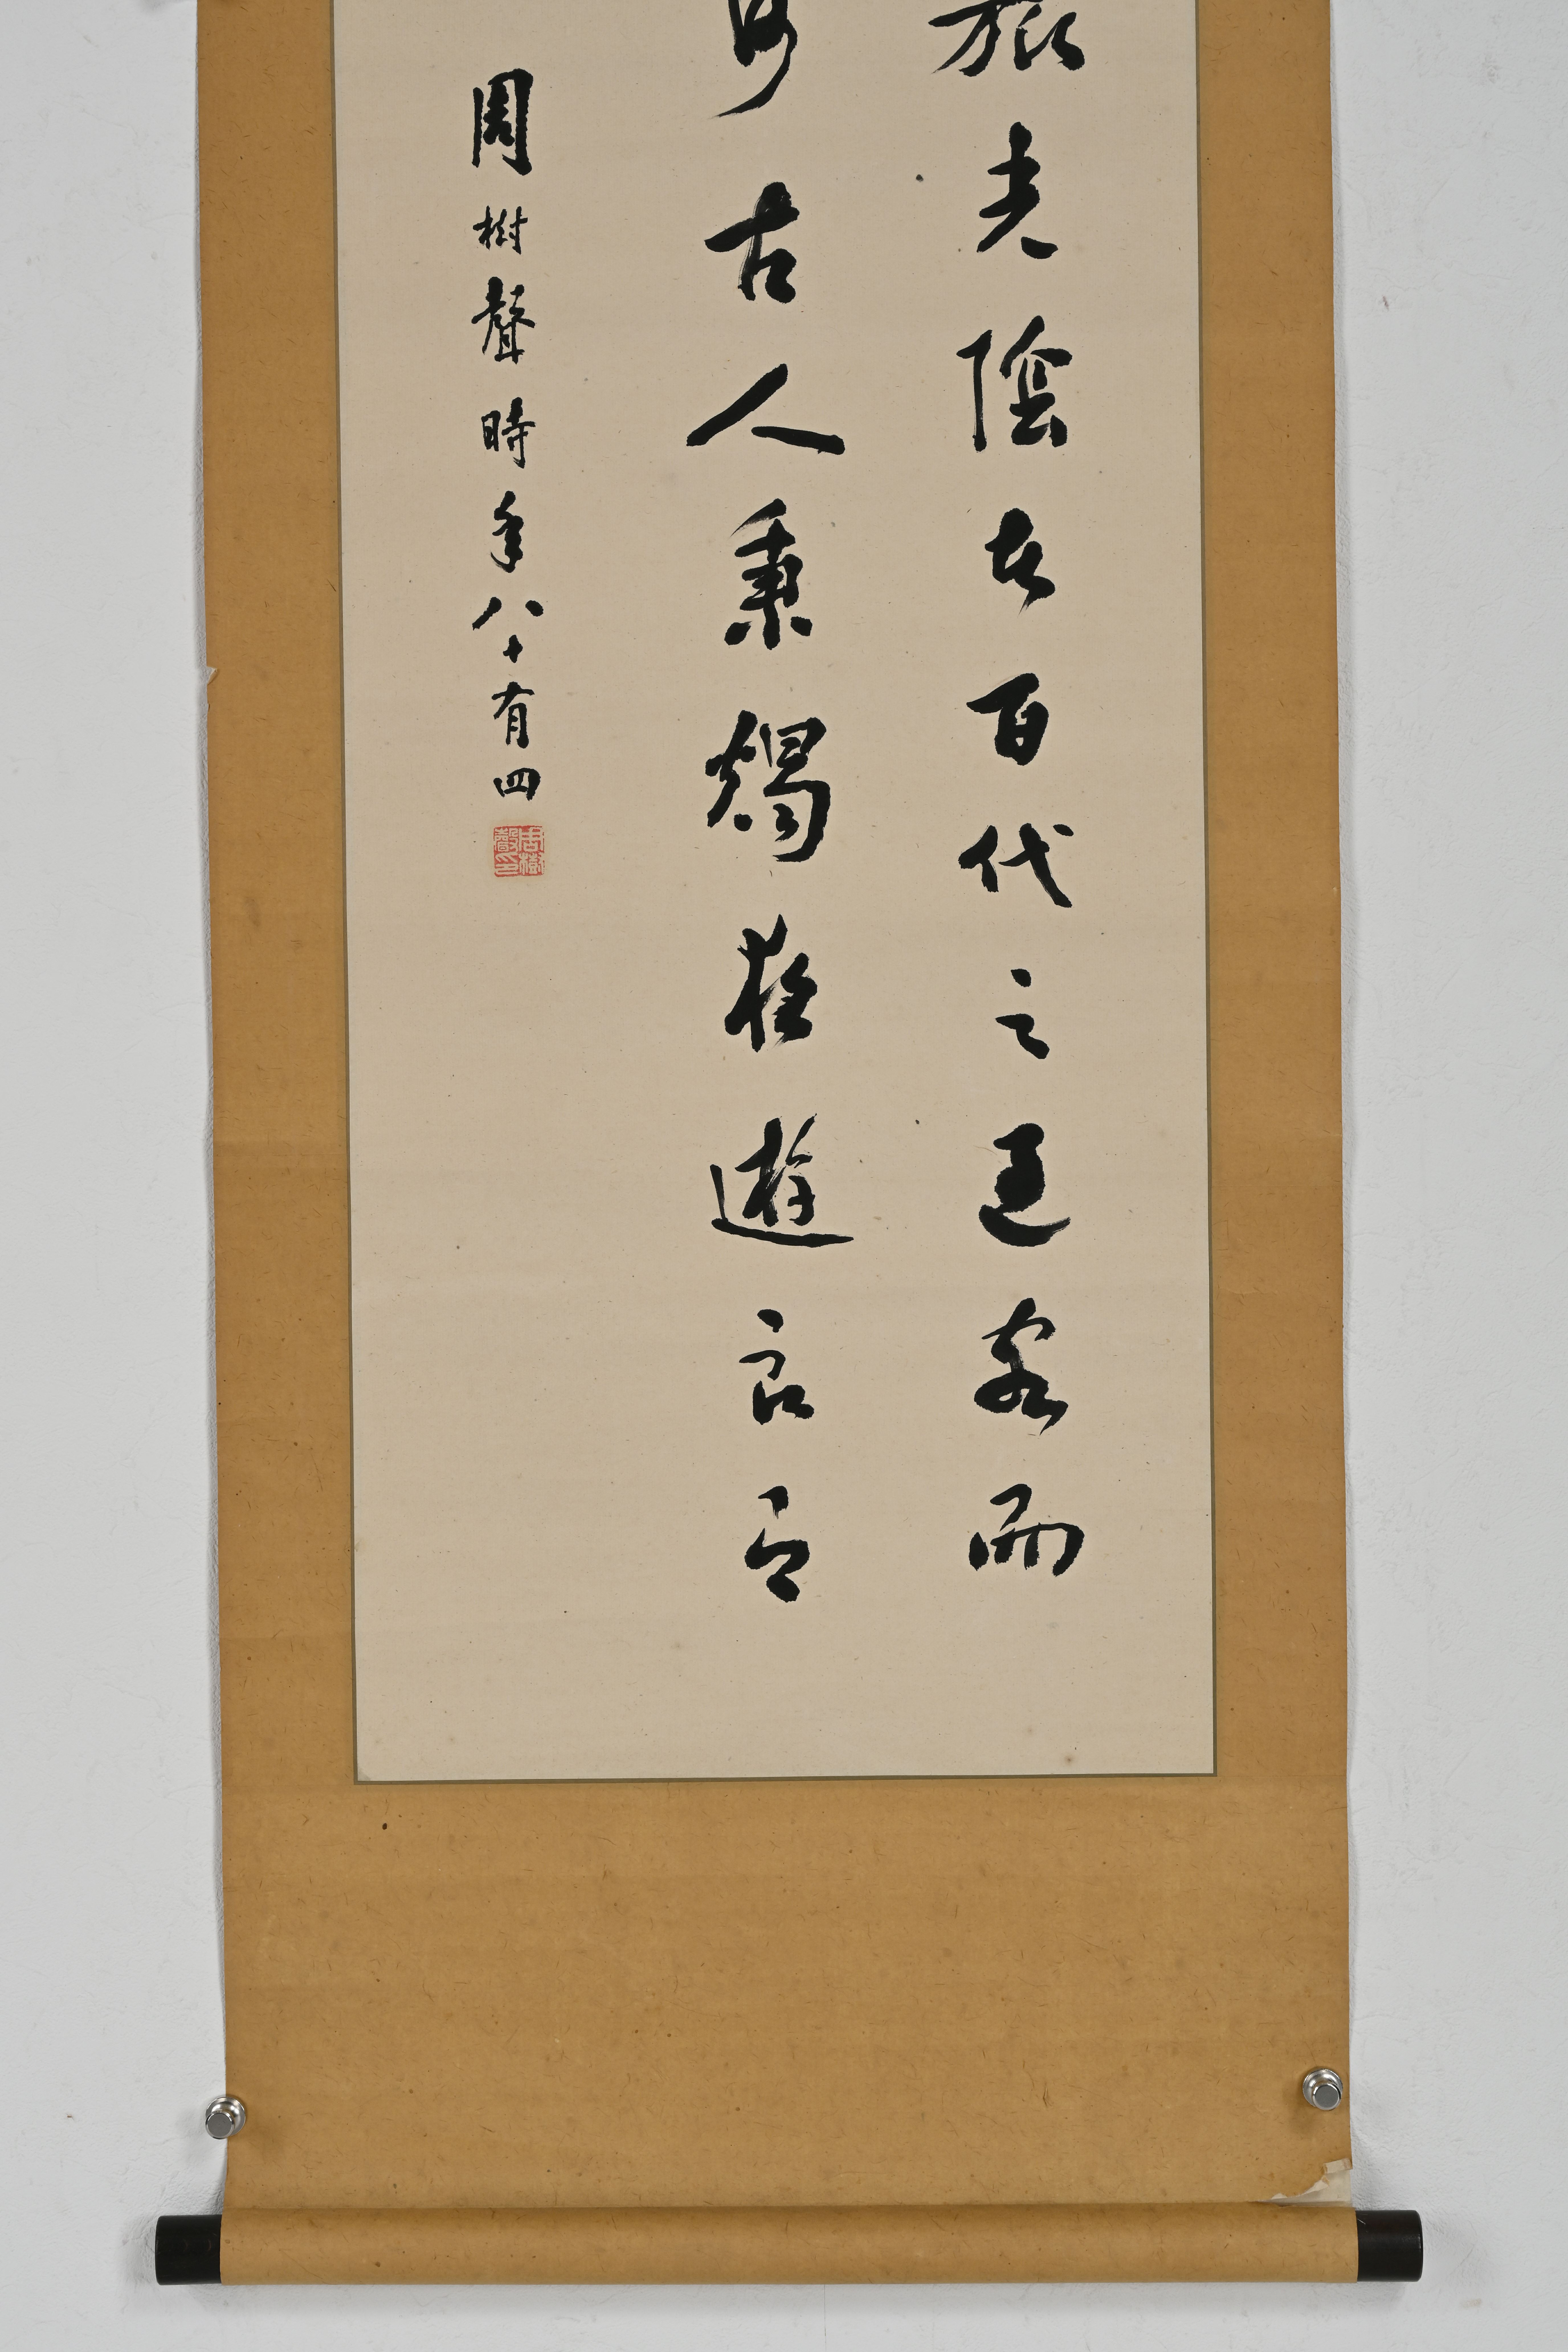 旅光陰者百代之過客而
古人秉燭夜遊良
周樹聲時年八十有四
周樹聲印